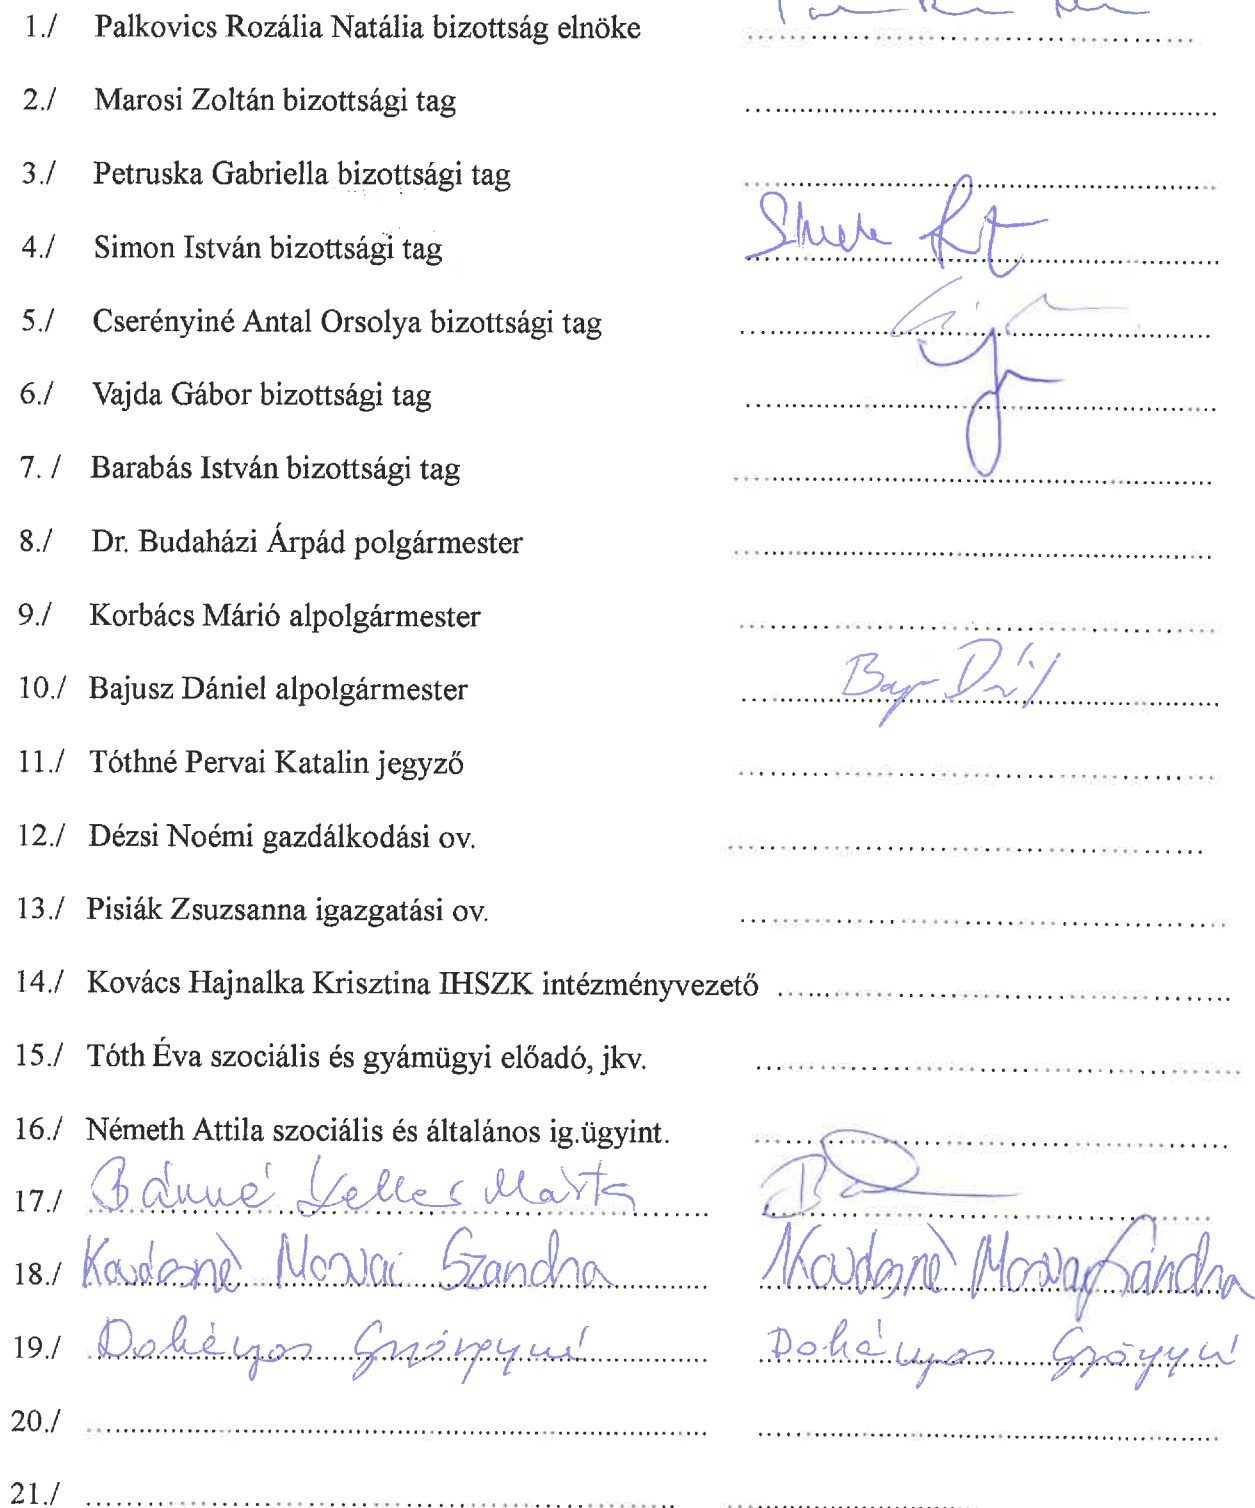 1./ Palkovics Rozália Natália bizottság elnöke
2./ Marosi Zoltán bizottsági tag
3./ Petruska Gabriella bizottsági tag
4./ Simon István bizottsági tag
5./ Cserényiné Antal Orsolya bizottsági tag
6./ Vajda Gábor bizottsági tag
7. / Barabás István bizottsági tag
8./ Dr. Budaházi Árpád polgármester
9./ Korbács Márió alpolgármester
10./ Bajusz Dániel alpolgármester
11./ Tóthné Pervai Katalin jegyző
12./ Dézsi Noémi gazdálkodási ov.
13./ Pisiák Zsuzsanna igazgatási ov.
14./ Kovács Hajnalka Krisztina IHSZK intézményvezető
15./ Tóth Éva szociális és gyámügyi előadó, jkv.
16./ Németh Attila szociális és általános ig.ügyint.
17./ Bánné Márta
18./ Szandra
19./ Dohányos Györgyné Dohányos
20./
21./